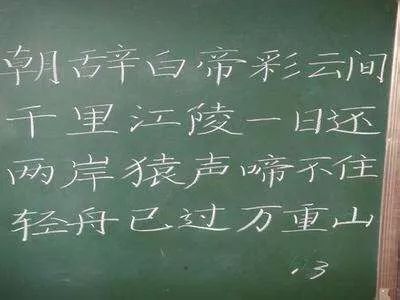 朝辞白帝彩云间
千里江陵一日还
两岸猿声啼不住
轻舟已过万重山
.3